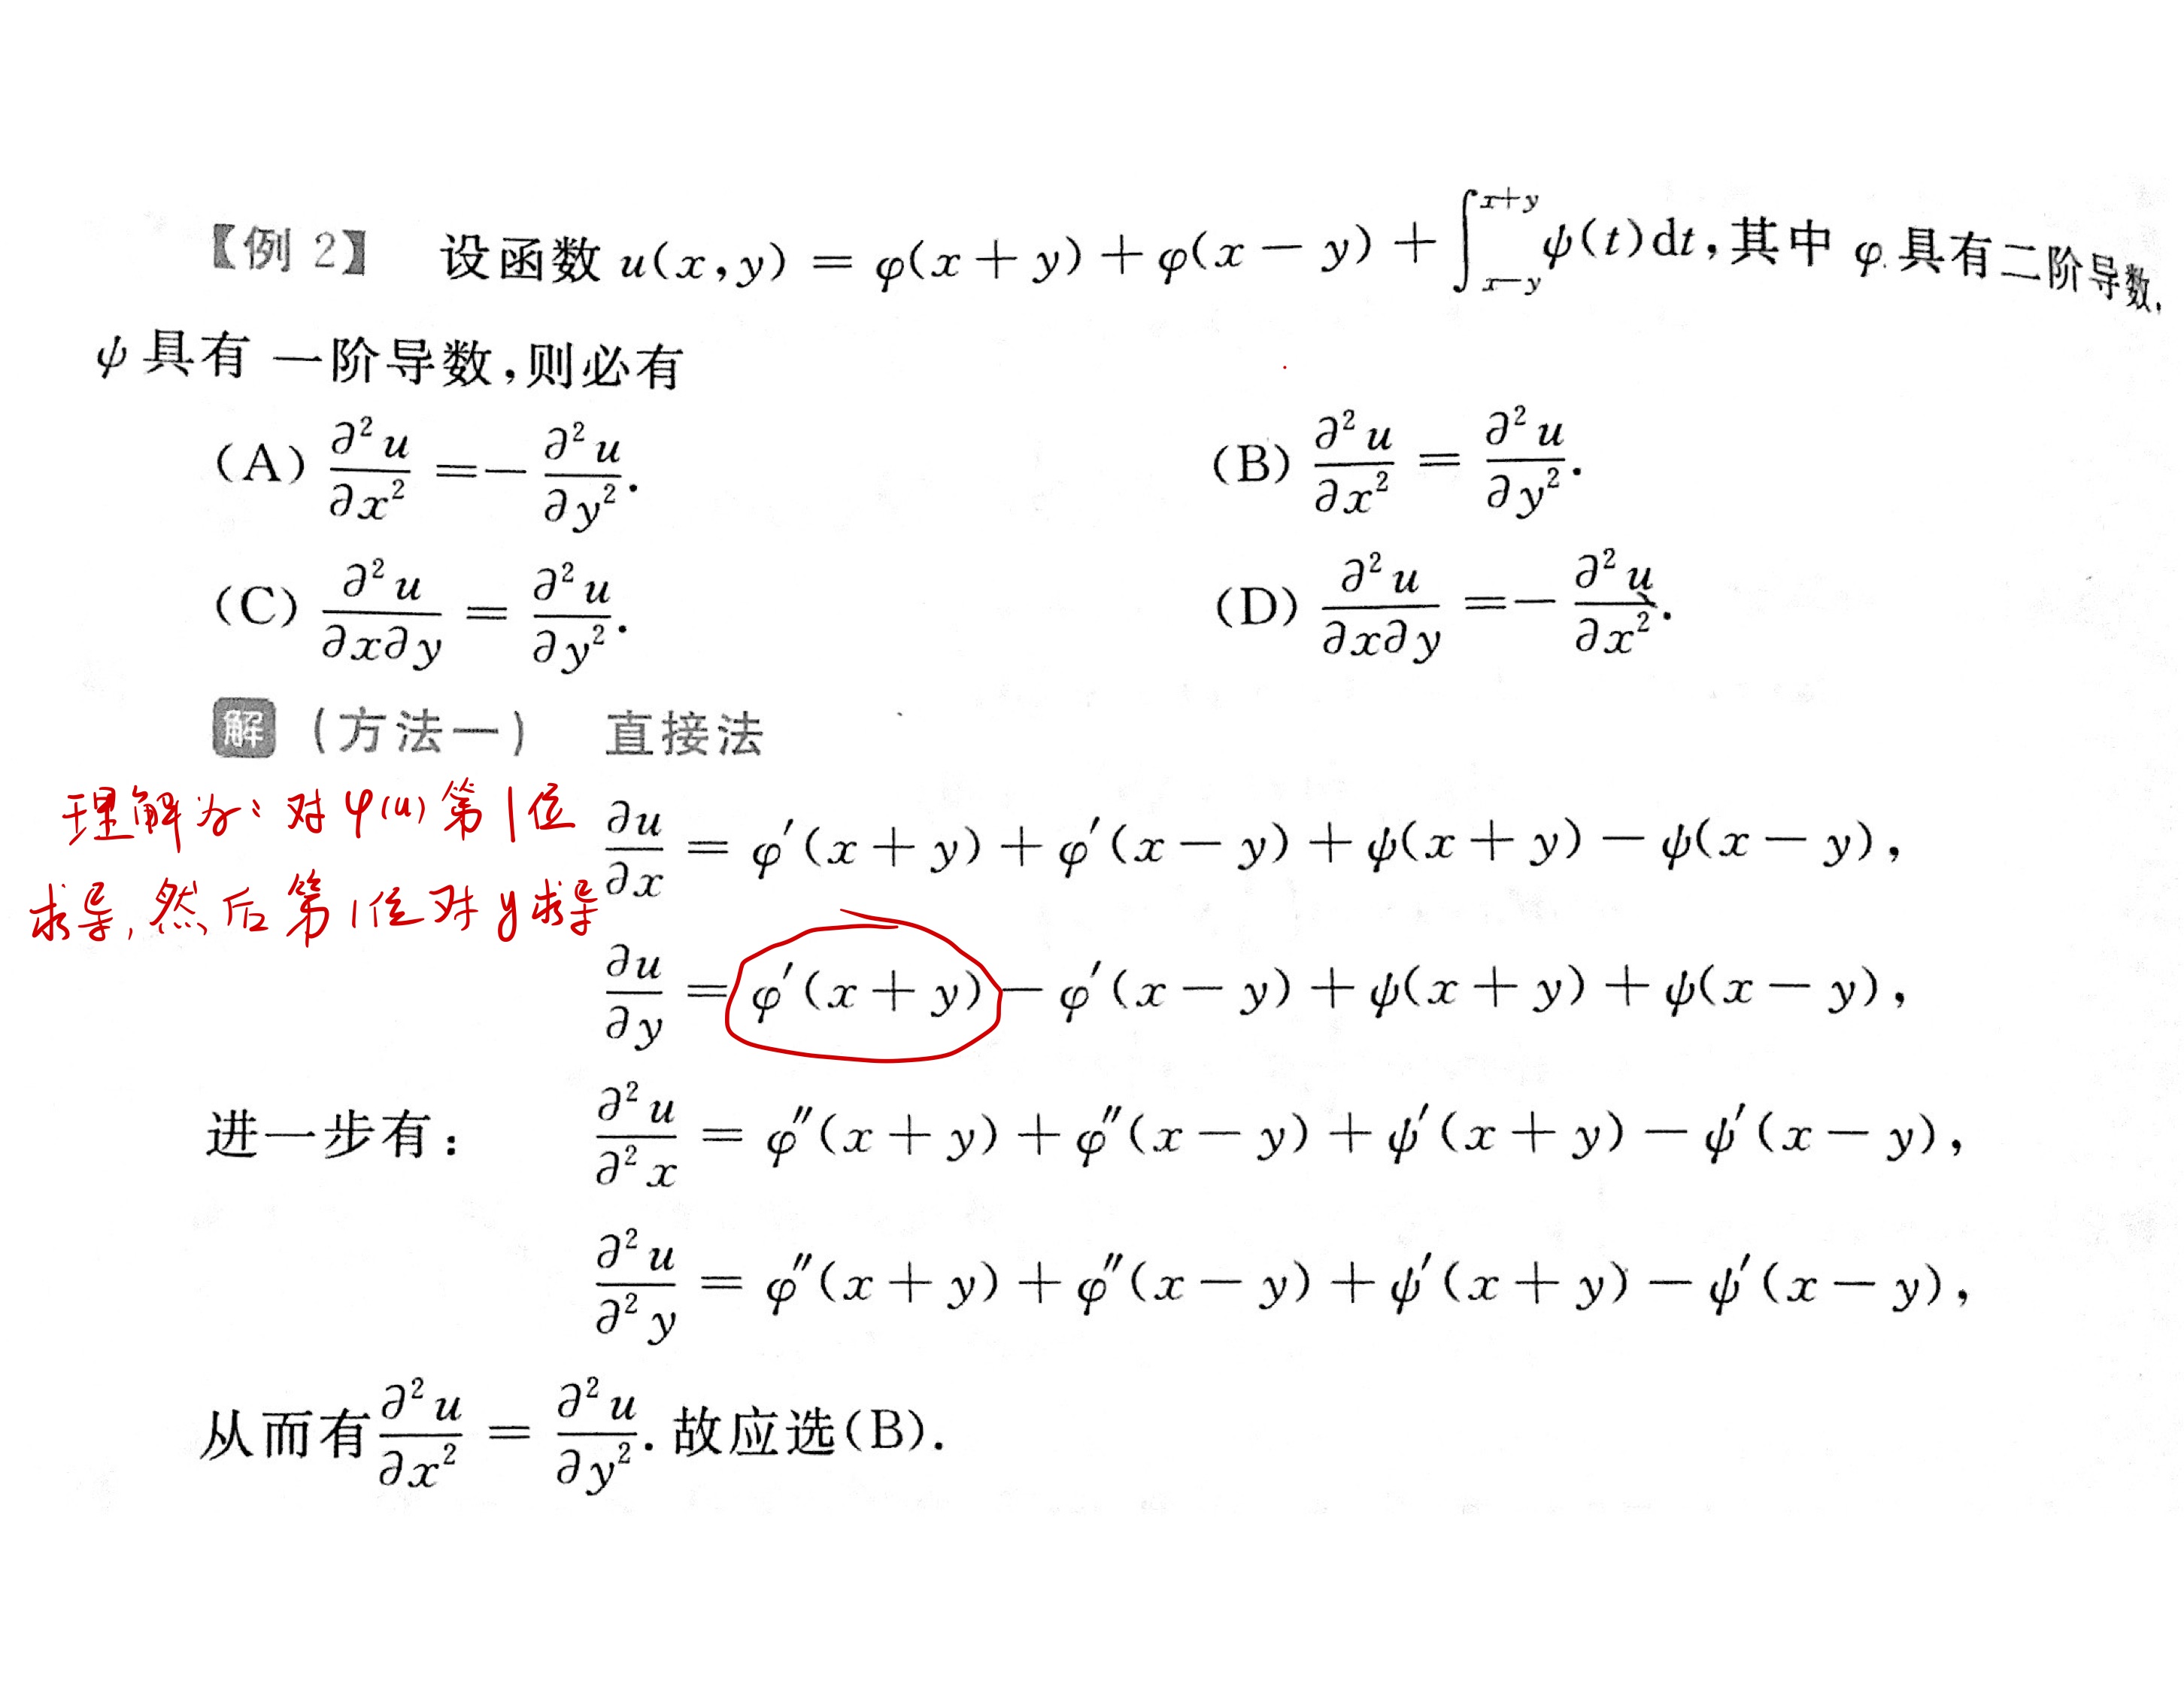 【例 2】 设函数 u(x,y) = φ(x + y) + φ(x − y) + ∫_{x−y}^{x+y} ψ(t)dt,其中 φ 具有二阶导数,
ψ 具有 一阶导数,则必有
(A) ∂²u/∂x² = − ∂²u/∂y². (B) ∂²u/∂x² = ∂²u/∂y².
(C) ∂²u/∂x∂y = ∂²u/∂y². (D) ∂²u/∂x∂y = − ∂²u/∂x².
解 (方法一) 直接法
理解为: 对 φ(u) 第1位
∂u/∂x = φ′(x + y) + φ′(x − y) + ψ(x + y) − ψ(x − y),
求导, 然后第1位对y求导
∂u/∂y = φ′(x + y) − φ′(x − y) + ψ(x + y) + ψ(x − y),
进一步有: ∂²u/∂²x = φ″(x + y) + φ″(x − y) + ψ′(x + y) − ψ′(x − y),
∂²u/∂²y = φ″(x + y) + φ″(x − y) + ψ′(x + y) − ψ′(x − y),
从而有 ∂²u/∂x² = ∂²u/∂y². 故应选(B).